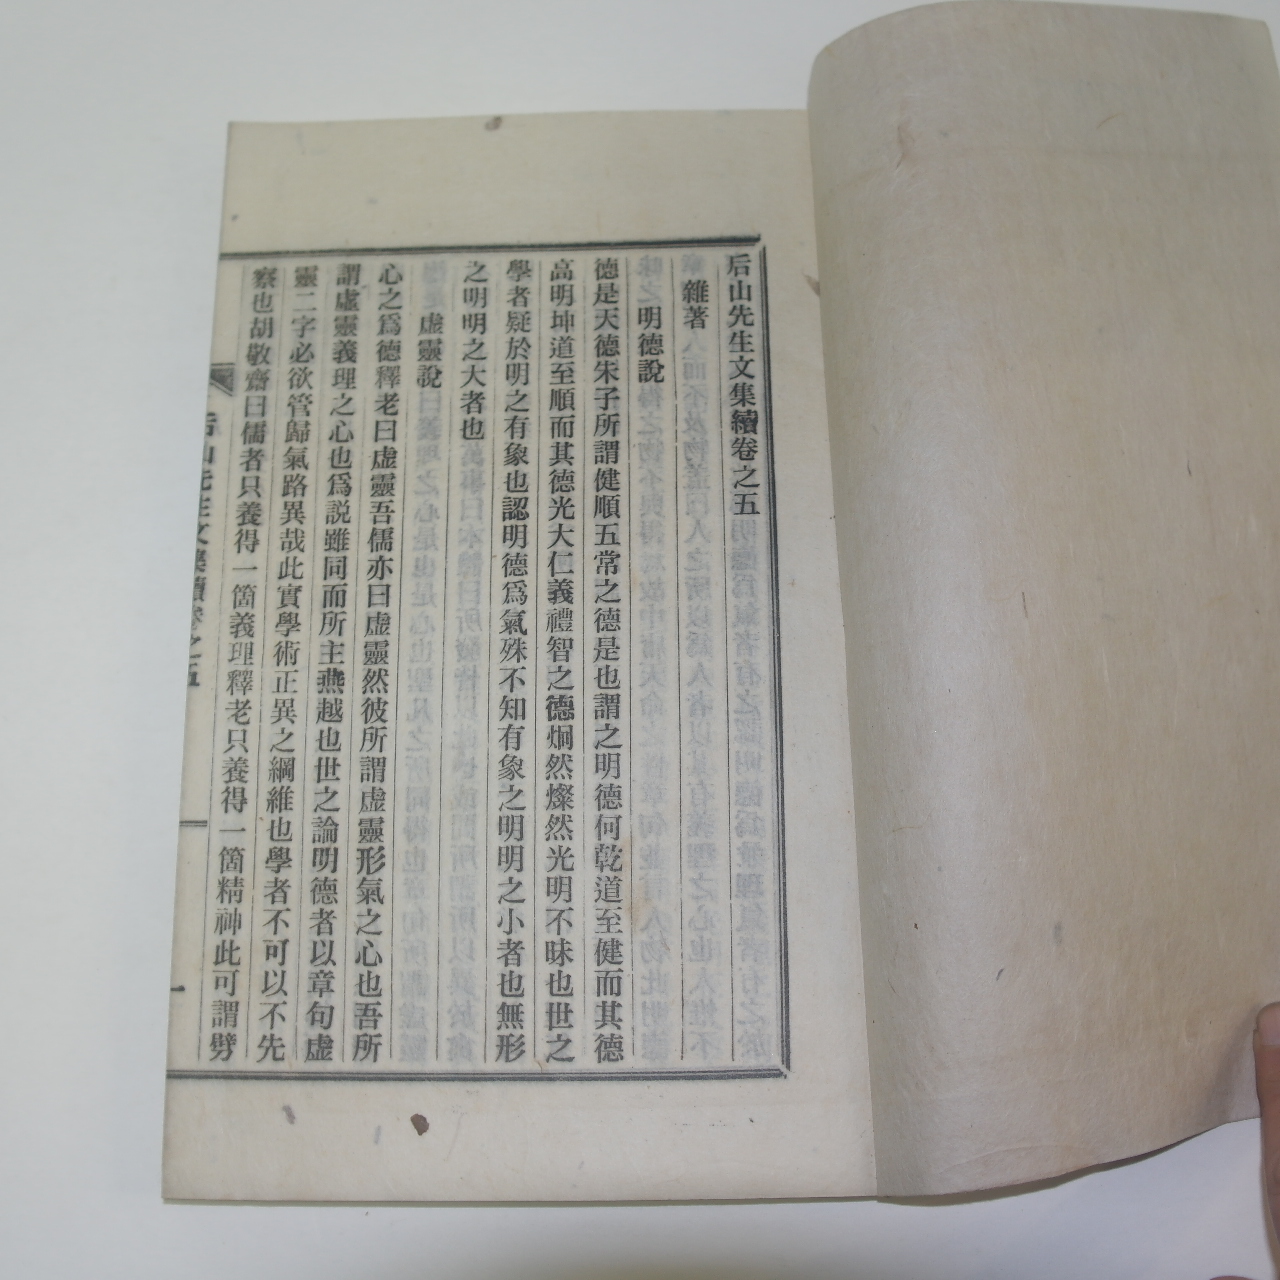 后山先生文集續卷之五
雜著
明德說
德是天德朱子所謂健順五常之德是也謂之明德何乾道至健而其德
高明坤道至順而其德光大仁義禮智之德炯然燦然光明不昧也世之
學者疑於明之有象也認明德爲氣殊不知有象之明明之小者也無形
之明明之大者也
虛靈說
心之爲德釋老曰虛靈吾儒亦曰虛靈然彼所謂虛靈形氣之心也吾所
謂虛靈義理之心也爲説雖同而所主燕越也世之論明德者以章句虛
靈二字必欲管歸氣路異哉此實學術正異之綱維也學者不可以不先
察也胡敬齋曰儒者只養得一箇義理釋老只養得一箇精神此可謂劈
后山先生文集續卷之五
一